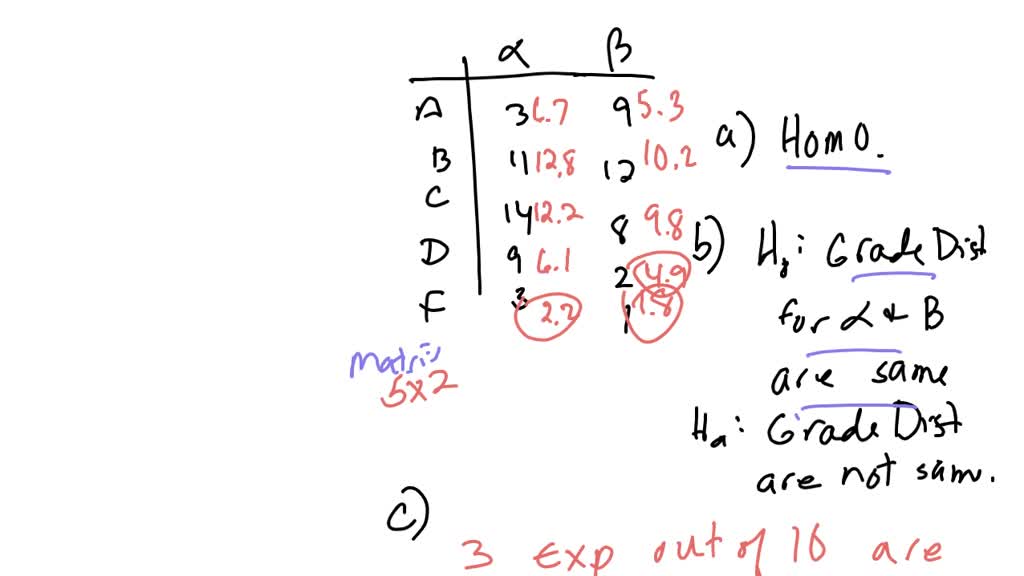 α β
A 3 6.7 9 5.3
B 11 12.8 12 10.2
C 14 12.2 8 9.8
D 9 6.1 2 4.9
F 3 2.2 1 1.8
Matrix
5x2
a) Homo.
b) H₀: Grade Dist
for α & B
are same
Ha: Grade Dist
are not sam.
c)
3 Exp out of 10 are